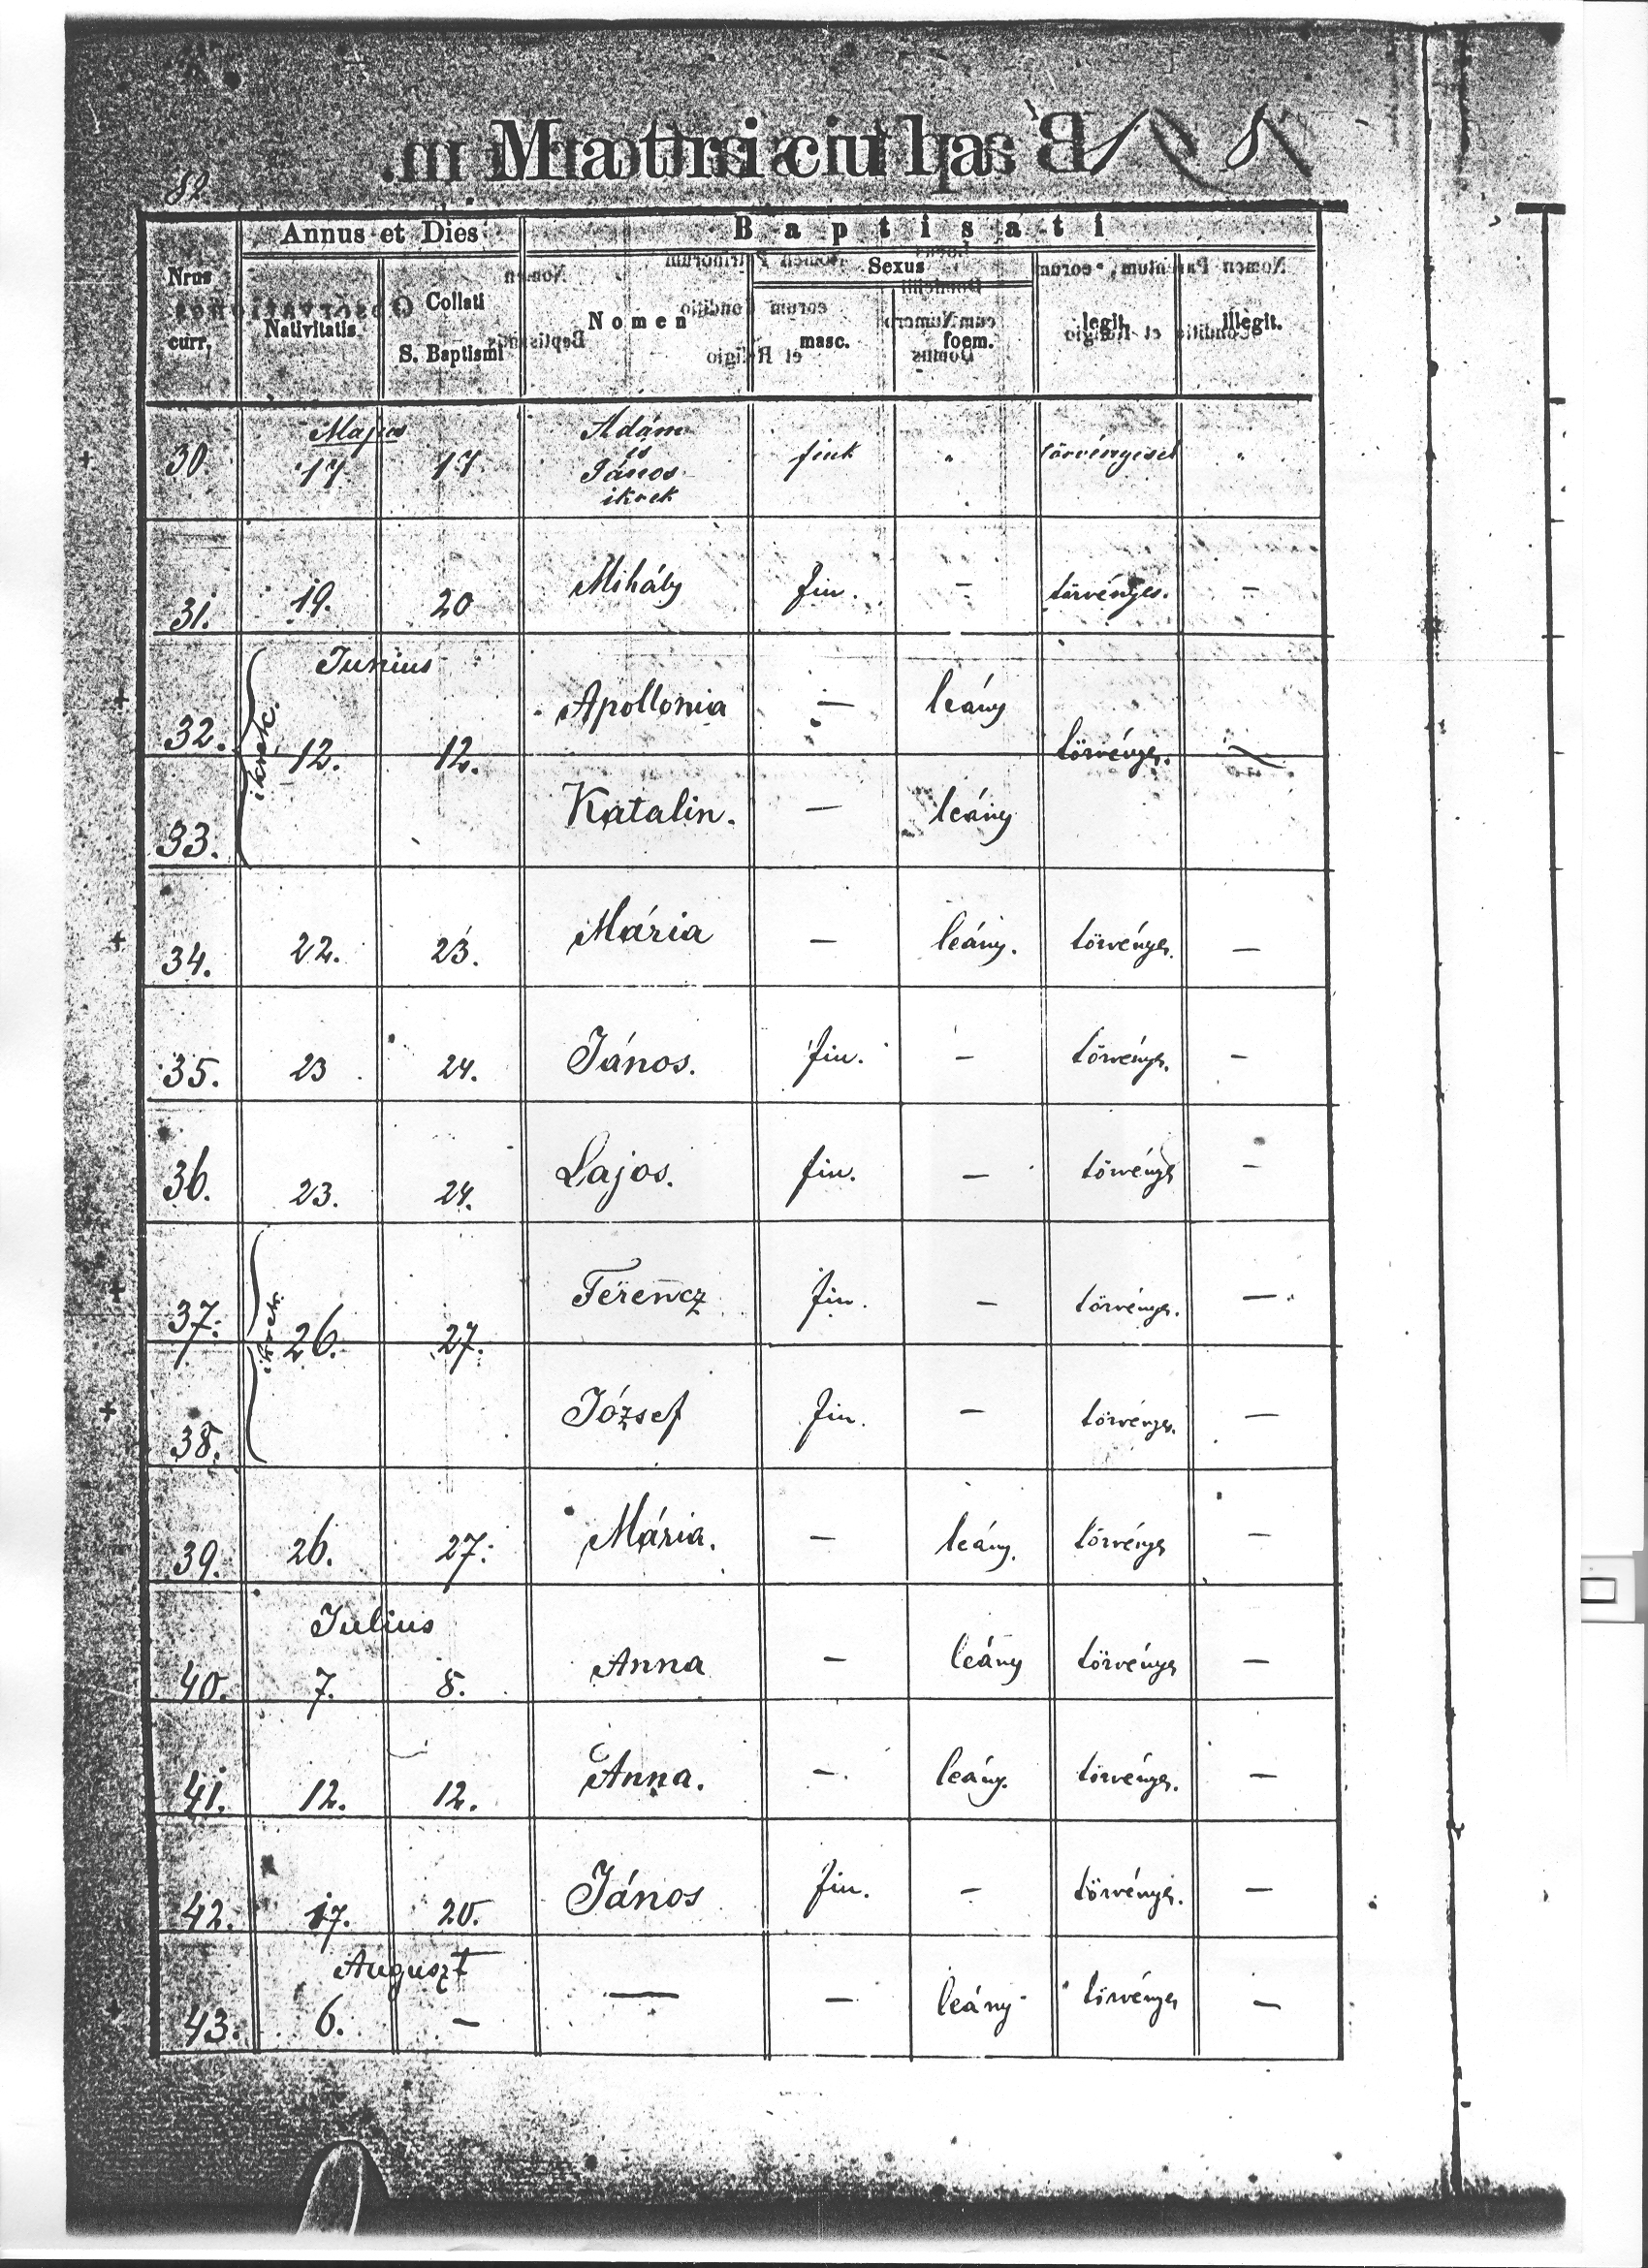 Matricula Bap
82
Annus et Dies
Baptisati
Nrus
curr.
Nativitatis
Collati
S. Baptismi
Nomen
Sexus
masc.
foem.
legit.
illegit.
Majus
30 17 17 Ádám
és
János
ikrek
fiuk " törvényesek "
31. 19. 20 Mihály fiu. – törvényes. –
Junius
32. ikrek. 12. 12. Apollonia – leány törvényes. –
33. Katalin. – leány
34. 22. 23. Mária – leány. törvényes. –
35. 23 24. János. fiu. – törvényes. –
36. 23. 24. Lajos. fiu. – törvényes –
37. ikrek. 26. 27. Ferencz fiu. – törvényes. –
38. József fiu. – törvényes. –
39. 26. 27. Mária. – leány. törvényes –
Julius
40. 7. 8. Anna – leány törvényes –
41. 12. 12. Anna. – leány. törvényes. –
42. 17. 20. János fiu. – törvényes. –
Auguszt
43. 6. – – – leány törvényes –